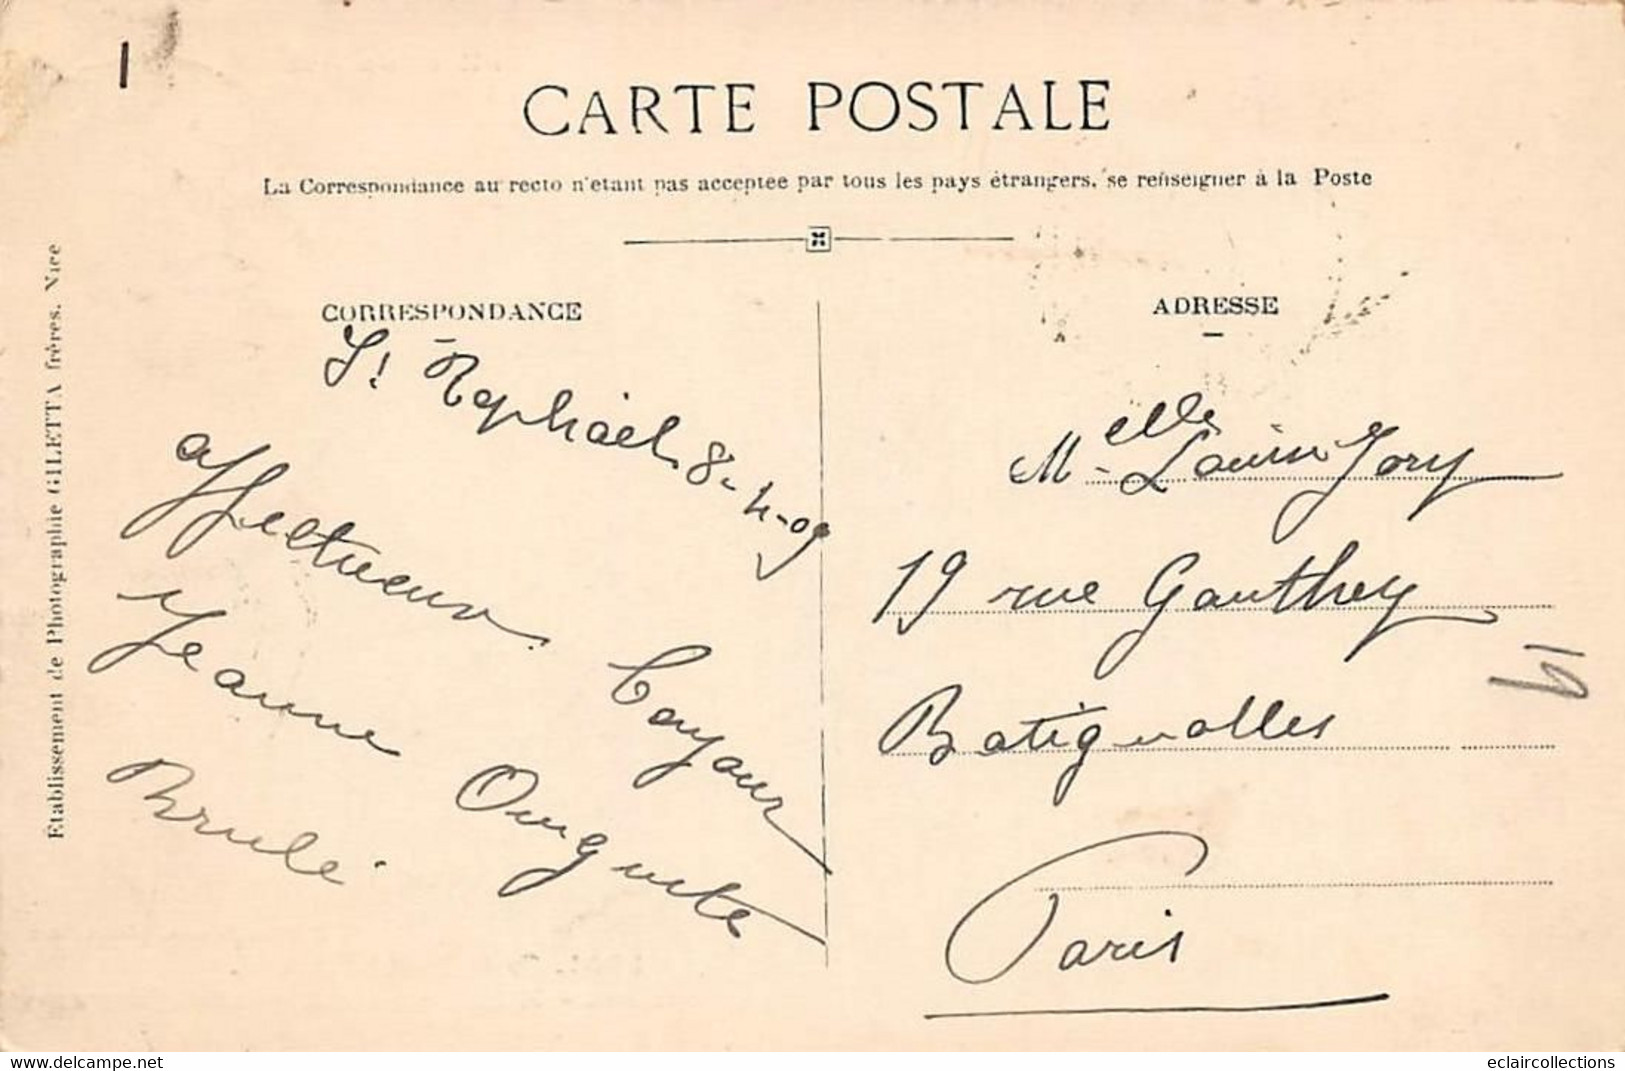 CARTE POSTALE
La Correspondance au recto n'étant pas acceptée par tous les pays étrangers, se renseigner à la Poste
CORRESPONDANCE
St Raphael 8-4-09
affectueux
Jeanne
Brulé
ADRESSE
Melle Jory
19 rue Gauthey
Batignolles
Paris
Etablissement de Photographie GILETTA frères. Nice
www.delcampe.net
eclaircollections